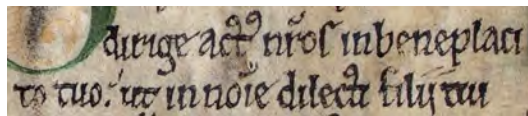 dirige actꝰ nr̃os in beneplaci
to tuo. ut in noĩe dilecti filij tui